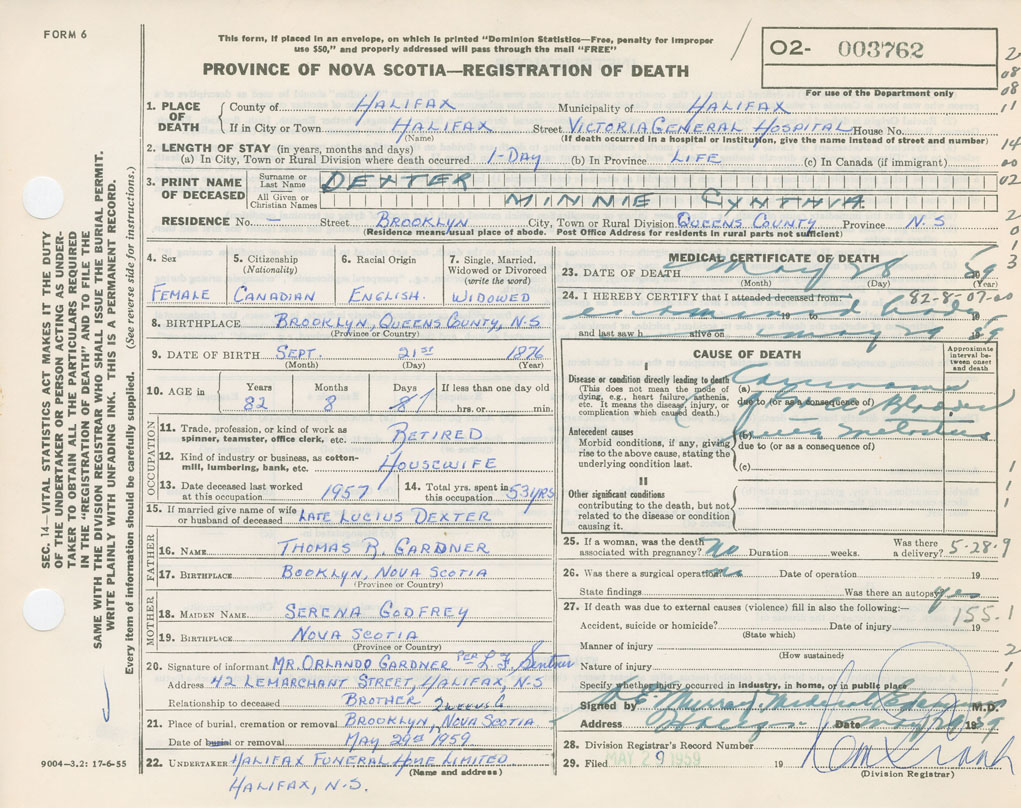 FORM 6
This form, if placed in an envelope, on which is printed "Dominion Statistics—Free, penalty for improper
use $50," and properly addressed will pass through the mail "FREE"
PROVINCE OF NOVA SCOTIA—REGISTRATION OF DEATH
O2- 003762
For use of the Department only
1. PLACE OF DEATH
County of HALIFAX Municipality of HALIFAX
If in City or Town HALIFAX Street VICTORIA GENERAL HOSPITAL House No.
(Name) (If death occurred in a hospital or institution, give the name instead of street and number)
2. LENGTH OF STAY (in years, months and days)
(a) In City, Town or Rural Division where death occurred 1-DAY (b) In Province LIFE (c) In Canada (if immigrant)
3. PRINT NAME OF DECEASED
Surname or Last Name DEXTER
All Given or Christian Names MINNIE CYNTHIA
RESIDENCE No. — Street BROOKLYN City, Town or Rural Division QUEENS COUNTY Province N.S
(Residence means usual place of abode. Post Office Address for residents in rural parts not sufficient)
4. Sex
FEMALE
5. Citizenship
(Nationality)
CANADIAN
6. Racial Origin
ENGLISH.
7. Single, Married,
Widowed or Divorced
(write the word)
WIDOWED
8. BIRTHPLACE BROOKLYN, QUEENS COUNTY, N.S
(Province or Country)
9. DATE OF BIRTH SEPT. 21ST 1876
(Month) (Day) (Year)
10. AGE in
Years Months Days If less than one day old
82 8 81 hrs. or min.
OCCUPATION
11. Trade, profession, or kind of work as
spinner, teamster, office clerk, etc. RETIRED
12. Kind of industry or business, as cotton-
mill, lumbering, bank, etc. HOUSEWIFE
13. Date deceased last worked
at this occupation 1957
14. Total yrs. spent in
this occupation 53 YRS
15. If married give name of wife
or husband of deceased LATE LUCIUS DEXTER
FATHER
16. NAME THOMAS R. GARDNER
17. BIRTHPLACE BOOKLYN, NOVA SCOTIA
(Province or Country)
MOTHER
18. MAIDEN NAME SERENA GODFREY
19. BIRTHPLACE NOVA SCOTIA
(Province or Country)
20. Signature of informant MR. ORLANDO GARDNER PER L.F.
Address 42 LEMARCHANT STREET, HALIFAX, N.S
Relationship to deceased BROTHER
21. Place of burial, cremation or removal BROOKLYN, NOVA SCOTIA
Date of burial or removal MAY 29th 1959
22. UNDERTAKER HALIFAX FUNERAL HOME LIMITED
(Name and address)
HALIFAX, N.S.
9004-3.2: 17-6-55
MEDICAL CERTIFICATE OF DEATH
23. DATE OF DEATH May 28 59
(Month) (Day) (Year)
24. I HEREBY CERTIFY that I attended deceased from: 82-8-07-00
examined body 19
and last saw h alive on May 29 1959
CAUSE OF DEATH
Approximate
interval be-
tween onset
and death
I
Disease or condition directly leading to death
(This does not mean the mode of
dying, e.g., heart failure, asthenia,
etc. It means the disease, injury, or
complication which caused death.)
(a) Carcinoma
due to (or as a consequence of)
Bladder
Antecedent causes
Morbid conditions, if any, giving
rise to the above cause, stating the
underlying condition last.
(b)
due to (or as a consequence of)
(c)
II
Other significant conditions
contributing to the death, but not
related to the disease or condition
causing it.
25. If a woman, was the death
associated with pregnancy? No Duration weeks. Was there
a delivery? 5-28-9
26. Was there a surgical operation No Date of operation 19
State findings Was there an autopsy yes
27. If death was due to external causes (violence) fill in also the following:—
155.1
Accident, suicide or homicide? Date of injury 19
(State which)
Manner of injury
(How sustained)
Nature of injury
Specify whether injury occurred in industry, in home, or in public place
Signed by M.D.
Address Date May 29 1959
28. Division Registrar's Record Number
29. Filed MAY 29 1959 19
(Division Registrar)
SEC. 14—VITAL STATISTICS ACT MAKES IT THE DUTY
OF THE UNDERTAKER OR PERSON ACTING AS UNDER-
TAKER TO OBTAIN ALL THE PARTICULARS REQUIRED
IN THE "REGISTRATION OF DEATH" AND TO FILE THE
SAME WITH THE DIVISION REGISTRAR WHO SHALL ISSUE THE BURIAL PERMIT.
WRITE PLAINLY WITH UNFADING INK. THIS IS A PERMANENT RECORD.
Every item of information should be carefully supplied. (See reverse side for instructions.)